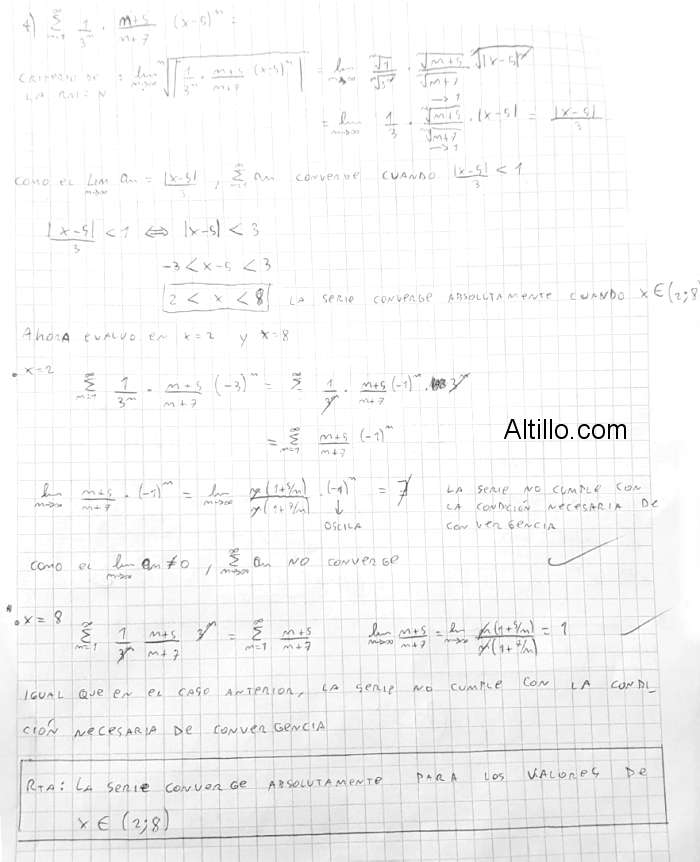 4) ∑_{n=1}^∞ 1/3^n · (n+5)/(n+7) (x-5)^n :
CRITERIO DE LA RAÍZ N : lim_{n→∞} ⁿ√|1/3^n · (n+5)/(n+7) (x-5)^n| = lim_{n→∞} ⁿ√1/ⁿ√3^n · ⁿ√(n+5)/ⁿ√(n+7) · ⁿ√|x-5|^n
= lim_{n→∞} 1/3 · ⁿ√(n+5)/ⁿ√(n+7) · |x-5| = |x-5|/3
→1
→1
COMO EL LIM_{n→∞} an = |x-5|/3 , ∑_{n=1}^∞ an CONVERGE CUANDO |x-5|/3 < 1
|x-5|/3 < 1 ⇔ |x-5| < 3
-3 < x-5 < 3
2 < x < 8 LA SERIE CONVERGE ABSOLUTAMENTE CUANDO x ∈ (2;8)
AHORA EVALUO EN x=2 y x=8
• x=2 ∑_{n=1}^∞ 1/3^n · (n+5)/(n+7) (-3)^n = ∑^∞ 1/3^n · (n+5)/(n+7) (-1)^n · 3^n
= ∑_{n=1}^∞ (n+5)/(n+7) (-1)^n
Altillo.com
lim_{n→∞} (n+5)/(n+7) · (-1)^n = lim_{n→∞} n(1+5/n)/n(1+7/n) · (-1)^n = ∄ LA SERIE NO CUMPLE CON
↓ LA CONDICIÓN NECESARIA DE
OSCILA CONVERGENCIA
COMO EL lim_{n→∞} an ≠ 0 , ∑_{n→∞}^∞ an NO CONVERGE ✓
• x=8 ∑_{n=1}^∞ 1/3^n (n+5)/(n+7) 3^n = ∑_{n=1}^∞ (n+5)/(n+7) lim_{n→∞} (n+5)/(n+7) = lim_{n→∞} n(1+5/n)/n(1+7/n) = 1 ✓
IGUAL QUE EN EL CASO ANTERIOR, LA SERIE NO CUMPLE CON LA CONDI_
CIÓN NECESARIA DE CONVERGENCIA
RTA: LA SERIE CONVERGE ABSOLUTAMENTE PARA LOS VALORES DE
x ∈ (2;8)